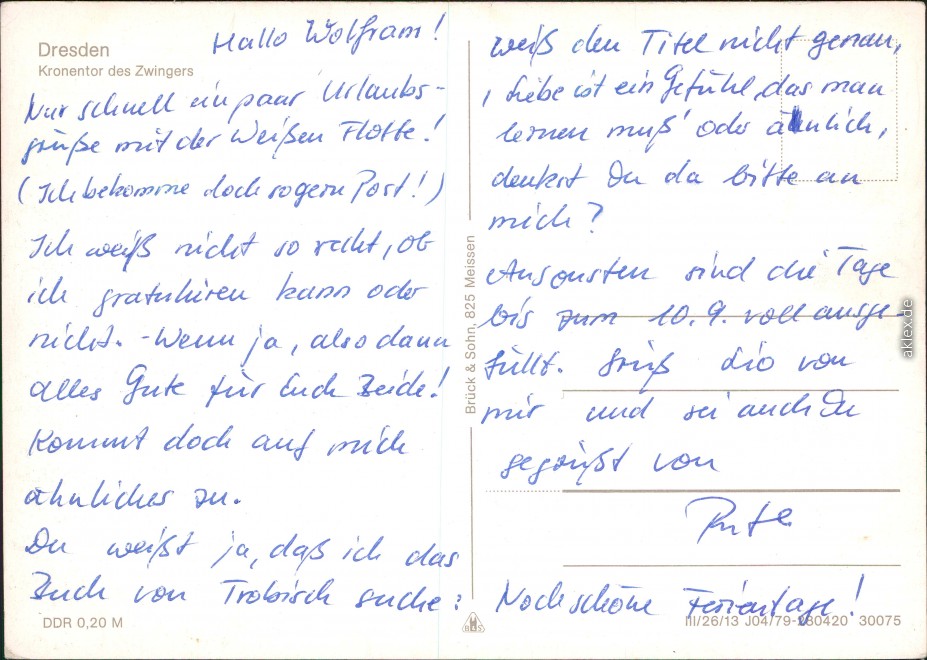 Dresden
Kronentor des Zwingers
Hallo Wolfram!
Nur schnell ein paar Urlaubs-
grüße mit der Weißen Flotte!
(Ich bekomme doch so gern Post!)
Ich weiß nicht so recht, ob
ich gratulieren kann oder
nicht. - Wenn ja, also dann
alles Gute für Euch Beide!
Kommt doch auf mich
ähnliches zu.
Du weißt ja, daß ich das
Buch von Trobisch suche:
DDR 0,20 M
Brück & Sohn, 825 Meissen
B&S
weiß den Titel nicht genau,
, Liebe ist ein Gefühl, das man
lernen muß' oder ähnlich,
denkst Du da bitte an
mich?
Ansonsten sind die Tage
bis zum 10.9. voll ausge-
füllt. Grüß Lio von
mir und sei auch Du
gegrüßt von
Noch schöne Ferientage!
III/26/13 J04/79-280420 30075
aklex.de